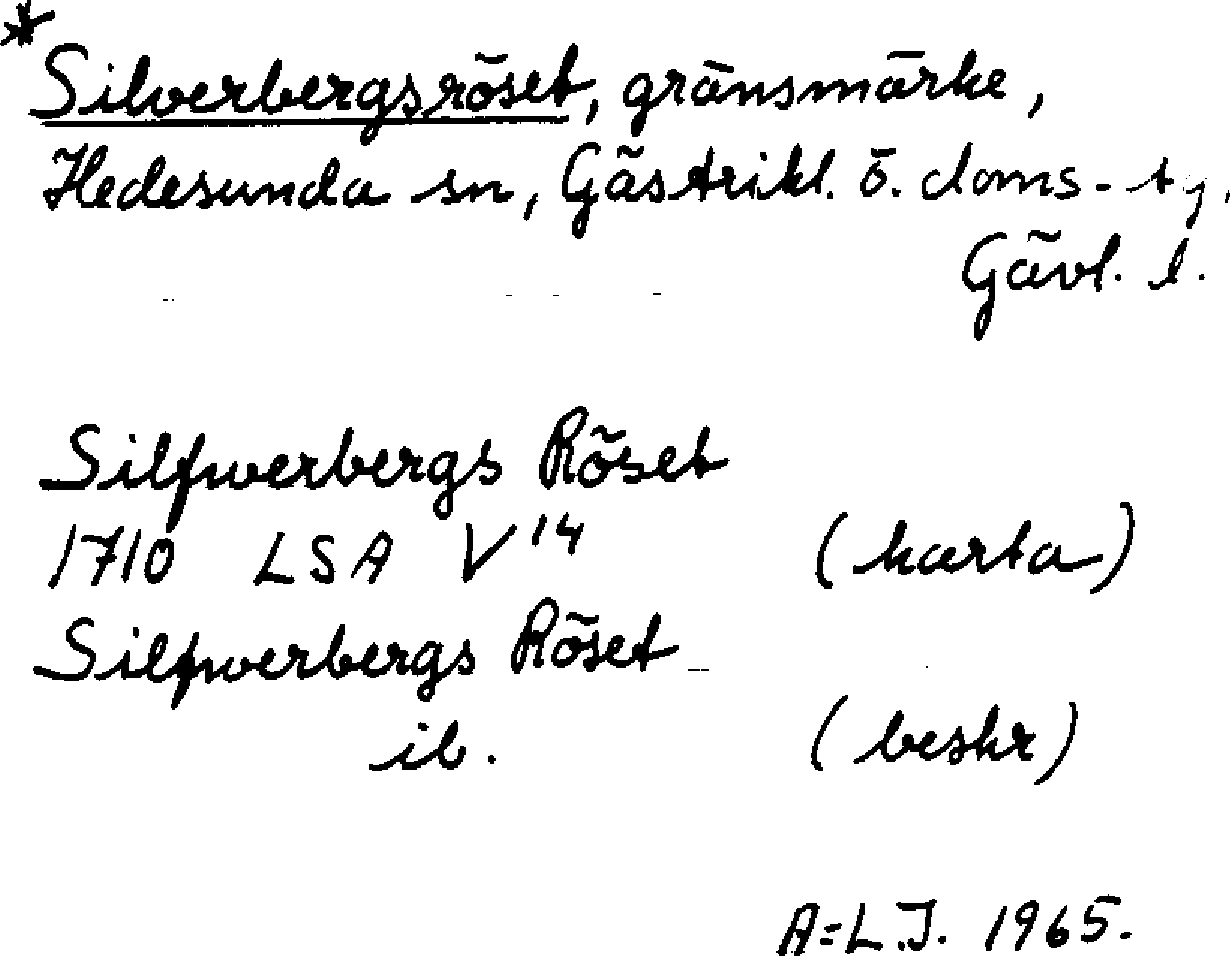 *Silverbergsröset, gränsmärke,
Hedesunda sn, Gästrikl. ö. doms- tg,
Gävl. l.
Silfwerbergs Röset
1710 LSA V14 (karta)
Silfwerbergs Röset
ib. (beskr)
A=L.J. 1965.